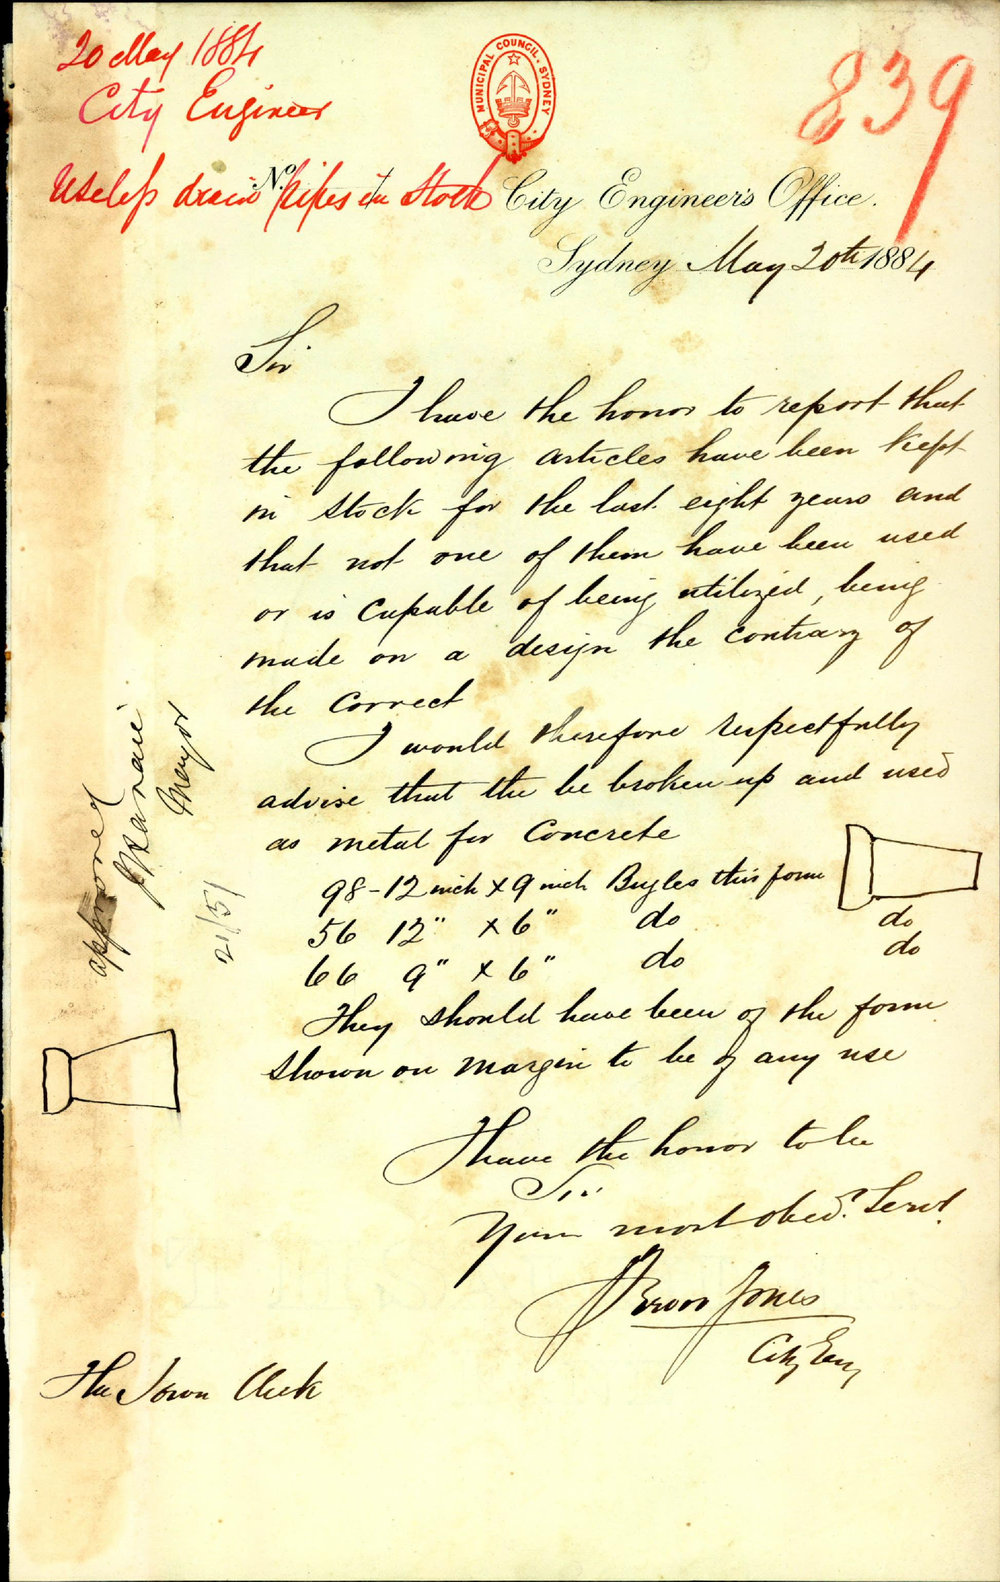 20 May 1884
City Engineer
Useless drain pipes in Stock
839
MUNICIPAL COUNCIL. SYDNEY
No.
City Engineer's Office.
Sydney May 20th 1884
Sir
I have the honor to report that
the following articles have been kept
in stock for the last eight years and
that not one of them have been used
or is capable of being utilized, being
made on a design the contrary of
the correct
I would therefore respectfully
advise that the be broken up and used
as metal for Concrete
98-12 inch x 9 inch Bugles this form
56 12" x 6" do do
66 9" x 6" do do
They should have been of the form
shown on margin to be of any use
I have the honor to be
Sir
Your most obed. Servt.
Jones
City Eng
The Town Clerk
approved
Mayor
21/5/